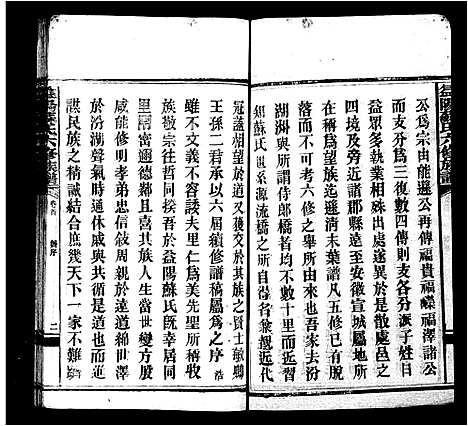 益陽蘇氏六修族譜
公爲宗由能遜公再傳福貴福嶸福澤諸公
而支分爲三復四傳則支各分派子姓日
眾多執業相殊出處遂異於是散處邑之
四境及旁近諸郡縣遠至安徽宣城屬地所
在稱爲望族迄清末葉譜凡五修已有以
落而不可考六修之舉所由來也吾家去汾
湖洲於侍郎橋者均不數十里而近習
知蘇氏 系源流橋之所自得者兼親近求
冠蓋相望於道又獲交於其族之賢士敏聰
王孫二君承以六屆續修譜稿屬爲之序浩
雖不文義不容諉夫里仁爲美先聖所稱收
族敬宗往哲同揆吾於益陽蘇氏既幸居同
里閈密邇德鄰且喜其族人生當世變方
咸能修其孝弟忠信敘周親於遠道綿世澤
於汾湖聲氣時通休戚與共循是道也而
謀民族之精誠結合庶幾天下一家不難
益陽蘇氏六修族譜
卷首
序
二